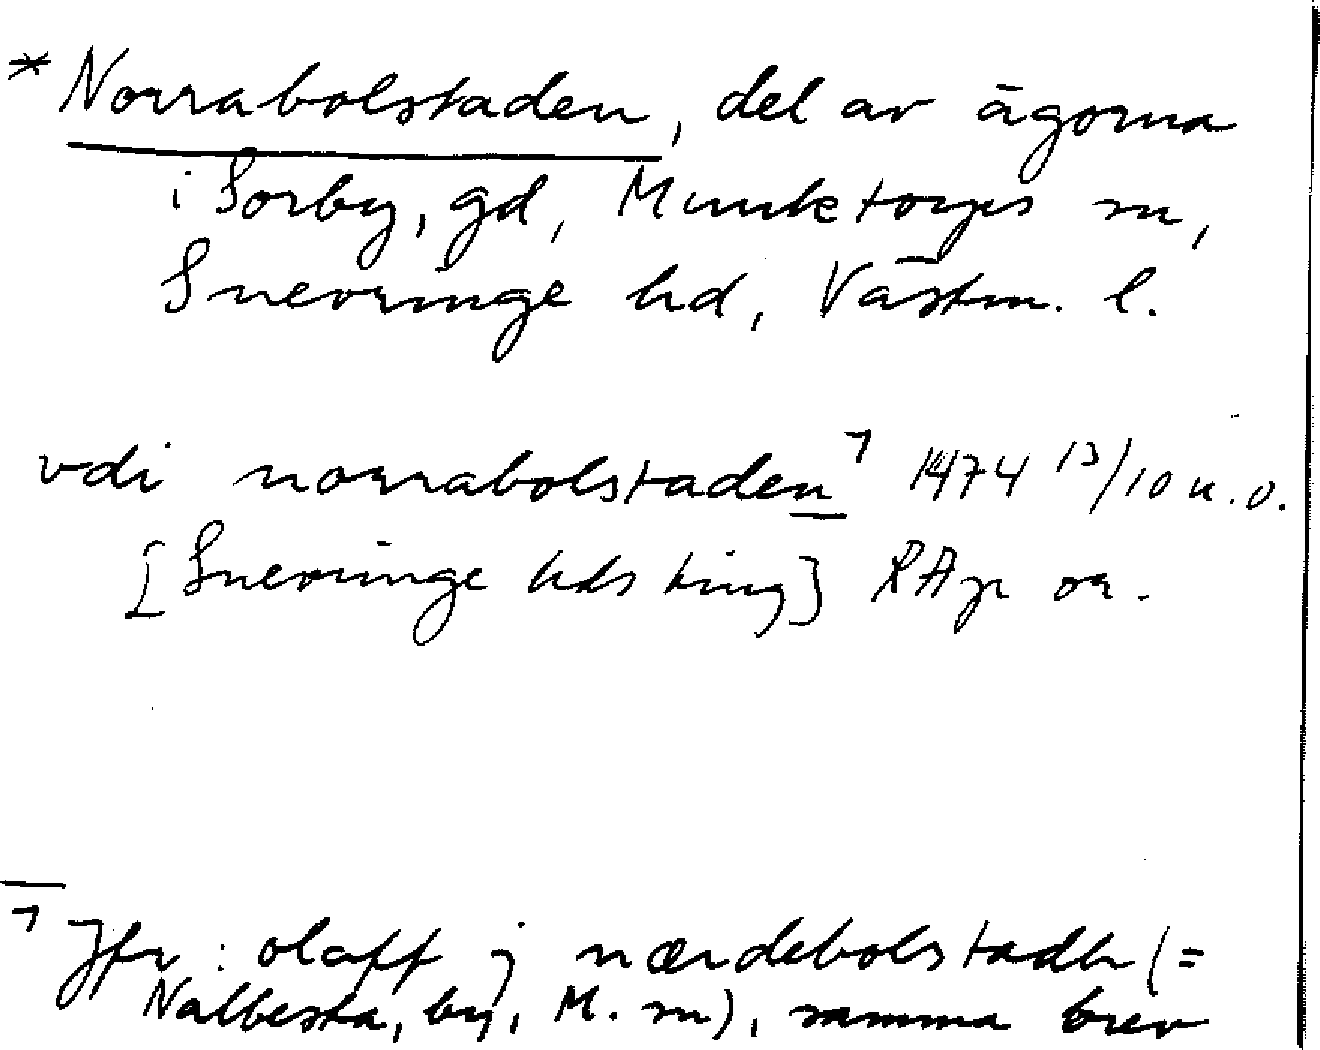 * Norrabolstaden, del av ägorna
i Sorby, gd, Munktorps sn,
Snevringe hd, Västm. l.
vdi norrabolstaden ¬ 1474 13/10 u.o.
[Snevringe hds ting] RAp or.
¬ Jfr: olaff j nærdebolstadh (=
Nalbesta, by, M. sn), samma brev